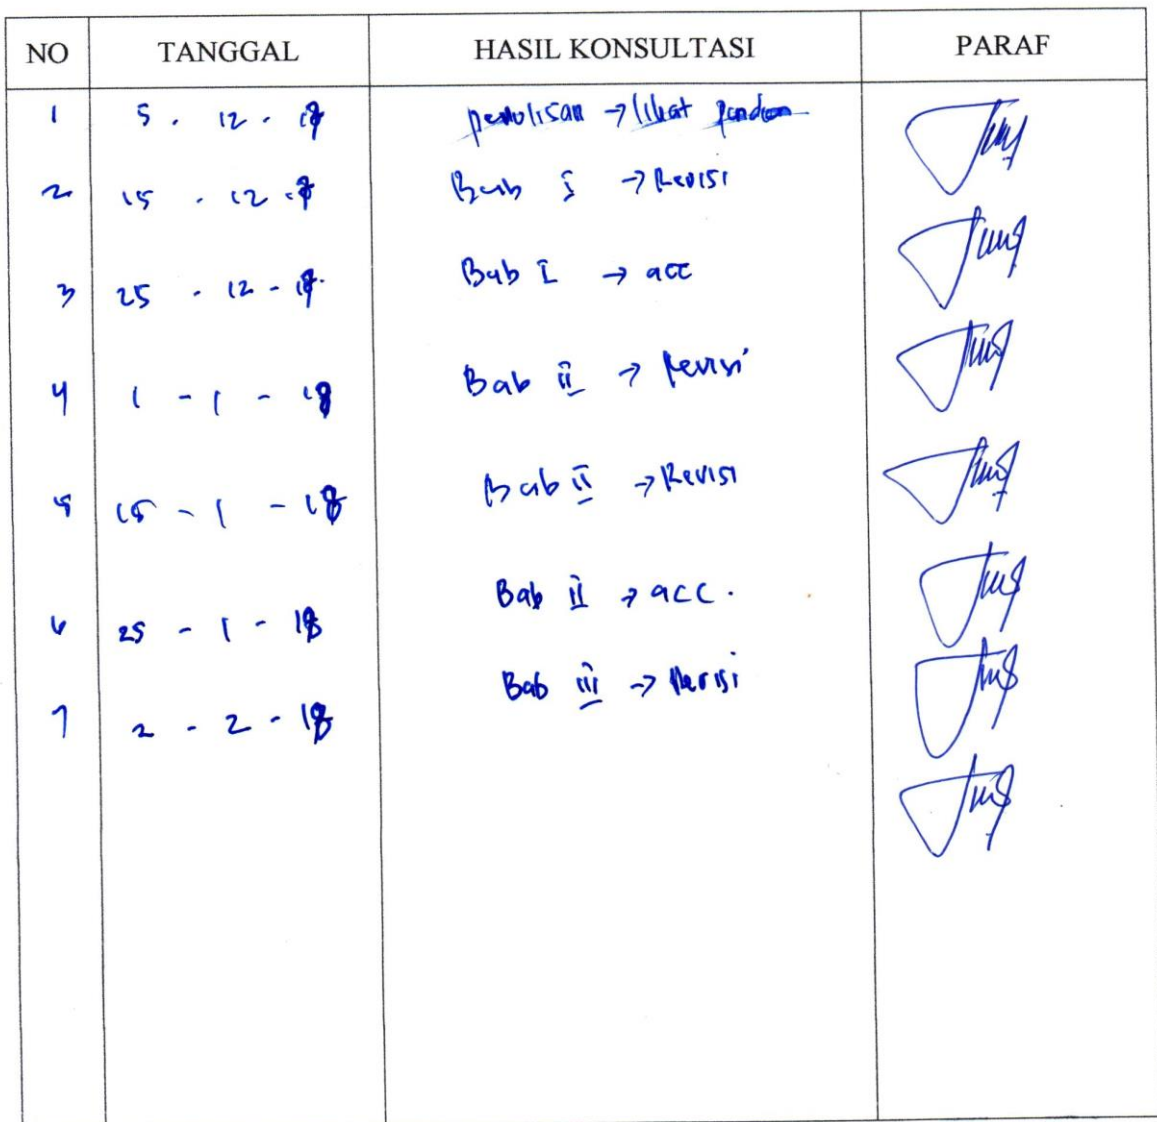 NO TANGGAL HASIL KONSULTASI PARAF
1 5 . 12 . penulisan → lihat
2 15 . 12 . Bab I → Revisi
3 25 - 12 - Bab I → acc
4 1 - 1 - 18 Bab II → Revisi
5 15 - 1 - 18 Bab II → Revisi
6 25 - 1 - 18 Bab II → acc.
7 2 - 2 - 18 Bab III → Revisi